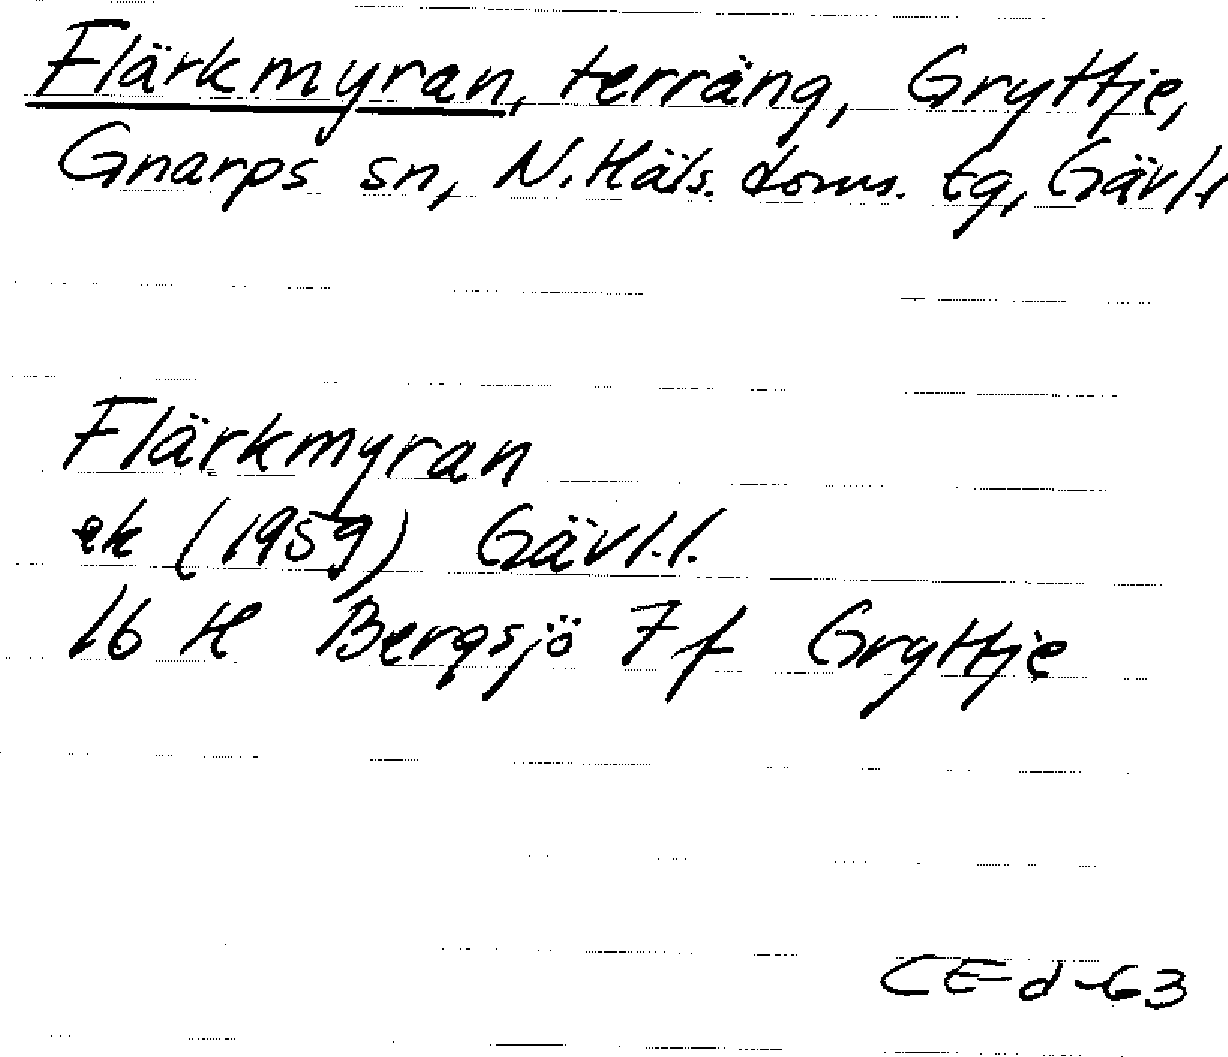 Flärkmyran, terräng, Gryttje,
Gnarps sn, N. Häls. doms. tg, Gävl.l
Flärkmyran
ek (1959) Gävl.l.
16 H Bergsjö 7f Gryttje
CE-d-63